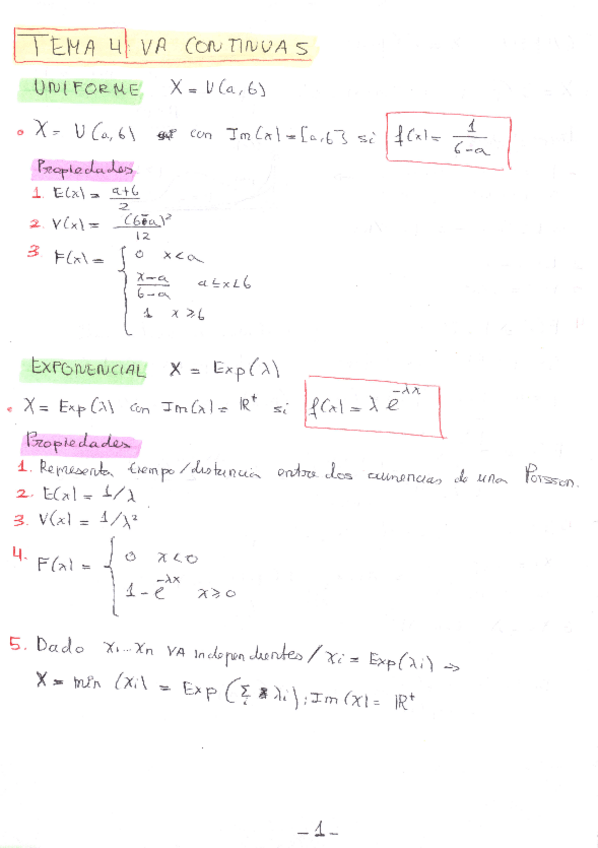 TEMA 4 VA CONTINUAS
UNIFORME X = U(a,b)
X = U(a,b) con Im(x) = [a,b] si f(x) = 1/(b-a)
Propiedades
1. E(x) = (a+b)/2
2. V(x) = (b-a)²/12
3 F(x) = { 0 x<a
(x-a)/(b-a) a≤x<b
1 x≥b
EXPONENCIAL X = Exp(λ)
X = Exp(λ) con Im(x) = ℝ⁺ si f(x) = λ e^(-λx)
Propiedades
1. Representa tiempo/distancia entre dos ocurrencias de una Poisson.
2. E(x) = 1/λ
3. V(x) = 1/λ²
4. F(x) = { 0 x<0
1 - e^(-λx) x≥0
5. Dado x₁...xn VA independientes / xi = Exp(λi) ⇒
X = min (xi) = Exp (Σi λi); Im(X) = ℝ⁺
- 1 -